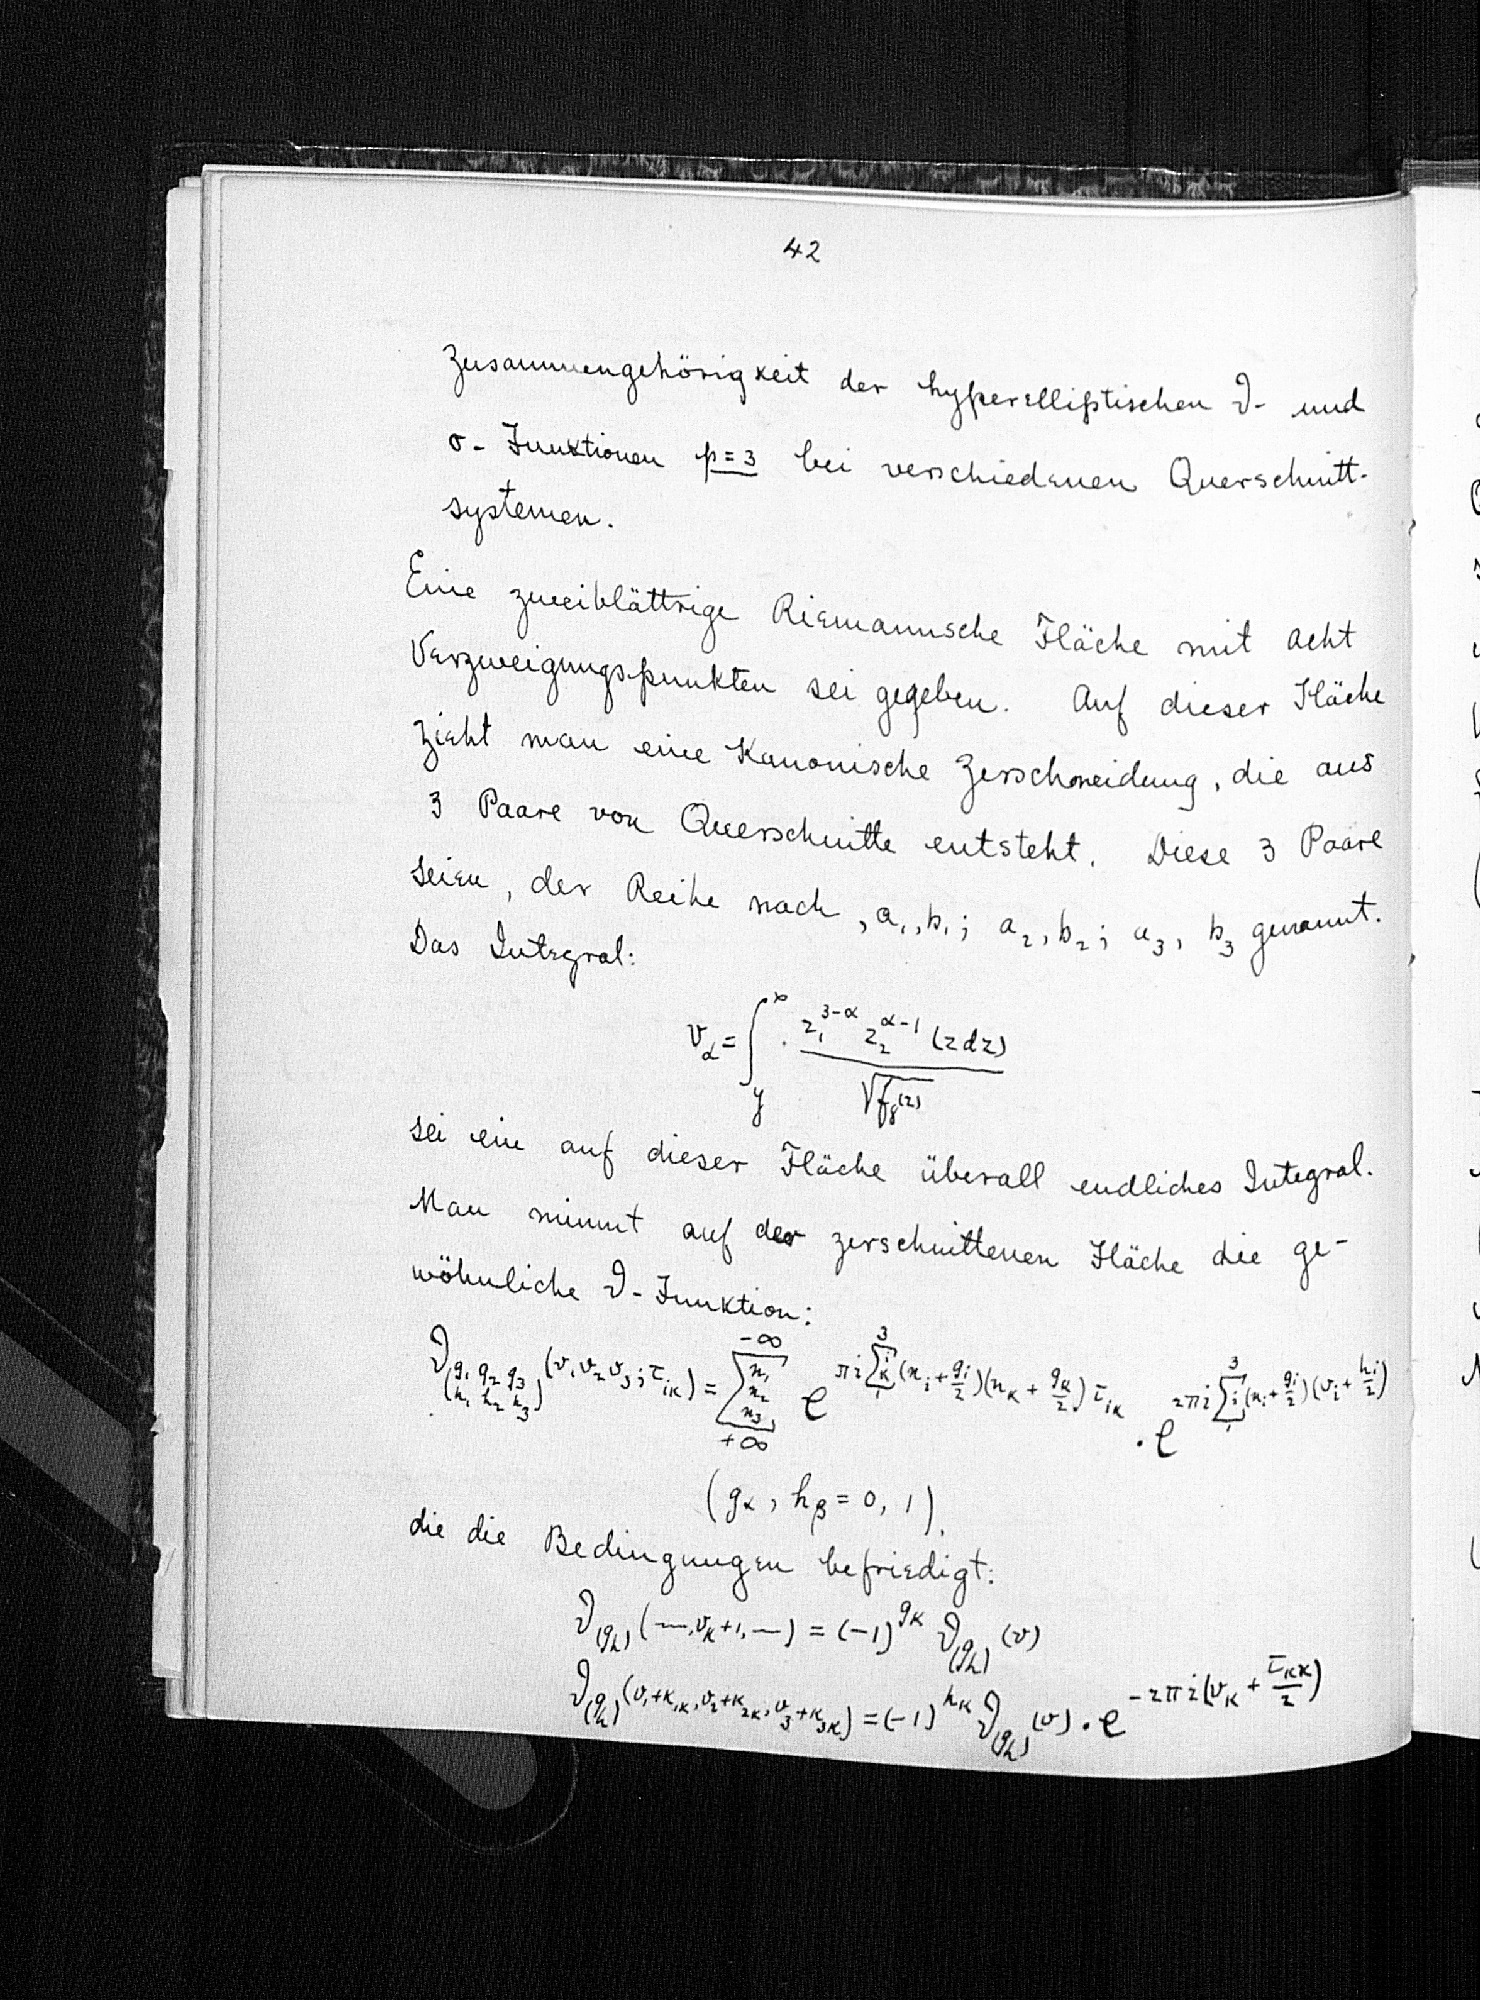 42
Zusammengehörigkeit der hyperelliptischen ϑ- und
σ- Funktionen p=3 bei verschiedenen Querschnitt-
systemen.
Eine zweiblättrige Riemannsche Fläche mit acht
Verzweigungspunkten sei gegeben. Auf dieser Fläche
zieht man eine kanonische Zerschneidung, die aus
3 Paare von Querschnitte entsteht. Diese 3 Paare
seien, der Reihe nach, a₁, b₁; a₂, b₂; a₃, b₃ genannt.
Das Integral:
v_α = ∫_y^x z₁^{3-α} z₂^{α-1} (z dz) / √f₈(z)
sei ein auf dieser Fläche überall endliches Integral.
Man nimmt auf der zerschnittenen Fläche die ge-
wöhnliche ϑ-Funktion:
ϑ_{(g₁ g₂ g₃ / h₁ h₂ h₃)} (v₁ v₂ v₃; τ_{iκ}) = ∑_{n₁ n₂ n₃, +∞}^{-∞} e^{πi ∑_1^3 {i κ} (n_i + g_i/2)(n_κ + g_κ/2) τ_{iκ}} · e^{2πi ∑_1^3 {i} (n_i + g_i/2)(v_i + h_i/2)}
(g_α, h_β = 0, 1).
die die Bedingungen befriedigt:
ϑ_{(g h)} (—, v_κ+1, —) = (-1)^{g_κ} ϑ_{(g h)} (v)
ϑ_{(g h)} (v₁+κ_{1κ}, v₂+κ_{2κ}, v₃+κ_{3κ}) = (-1)^{h_κ} ϑ_{(g h)} (v) · e^{-2πi(v_κ + τ_{κκ}/2)}